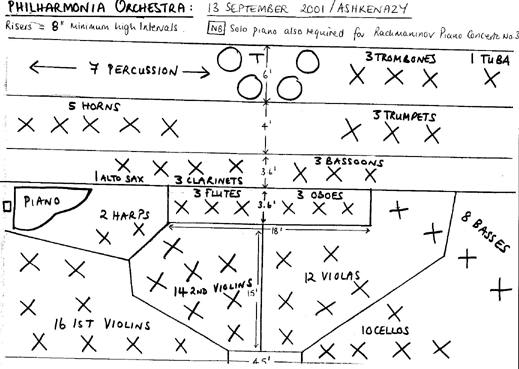 PHILHARMONIA ORCHESTRA: 13 SEPTEMBER 2001 / ASHKENAZY
Risers = 8" minimum high Intervals.
NB Solo piano also required for Rachmaninov Piano Concerto No 3
7 PERCUSSION
T
6'
3 TROMBONES
1 TUBA
5 HORNS
4'
3 TRUMPETS
1 ALTO SAX
3 CLARINETS
3.6'
3 BASSOONS
PIANO
2 HARPS
3 FLUTES
3.6'
3 OBOES
18'
8 BASSES
14 2ND VIOLINS
15'
12 VIOLAS
16 1ST VIOLINS
10 CELLOS
4.5'